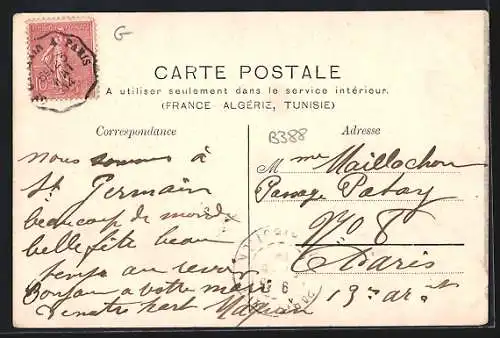 G
CARTE POSTALE
A utiliser seulement dans le service intérieur.
(FRANCE, ALGÉRIE, TUNISIE)
Correspondance
B388
Adresse
nous sommes à
St Germain
beaucoup de monde
belle fête beau
temps au revoir
Bonjour a votre mari
de notre part
M me Maillochon
Passage Patay
No 8
Paris
13e arrt
PARIS